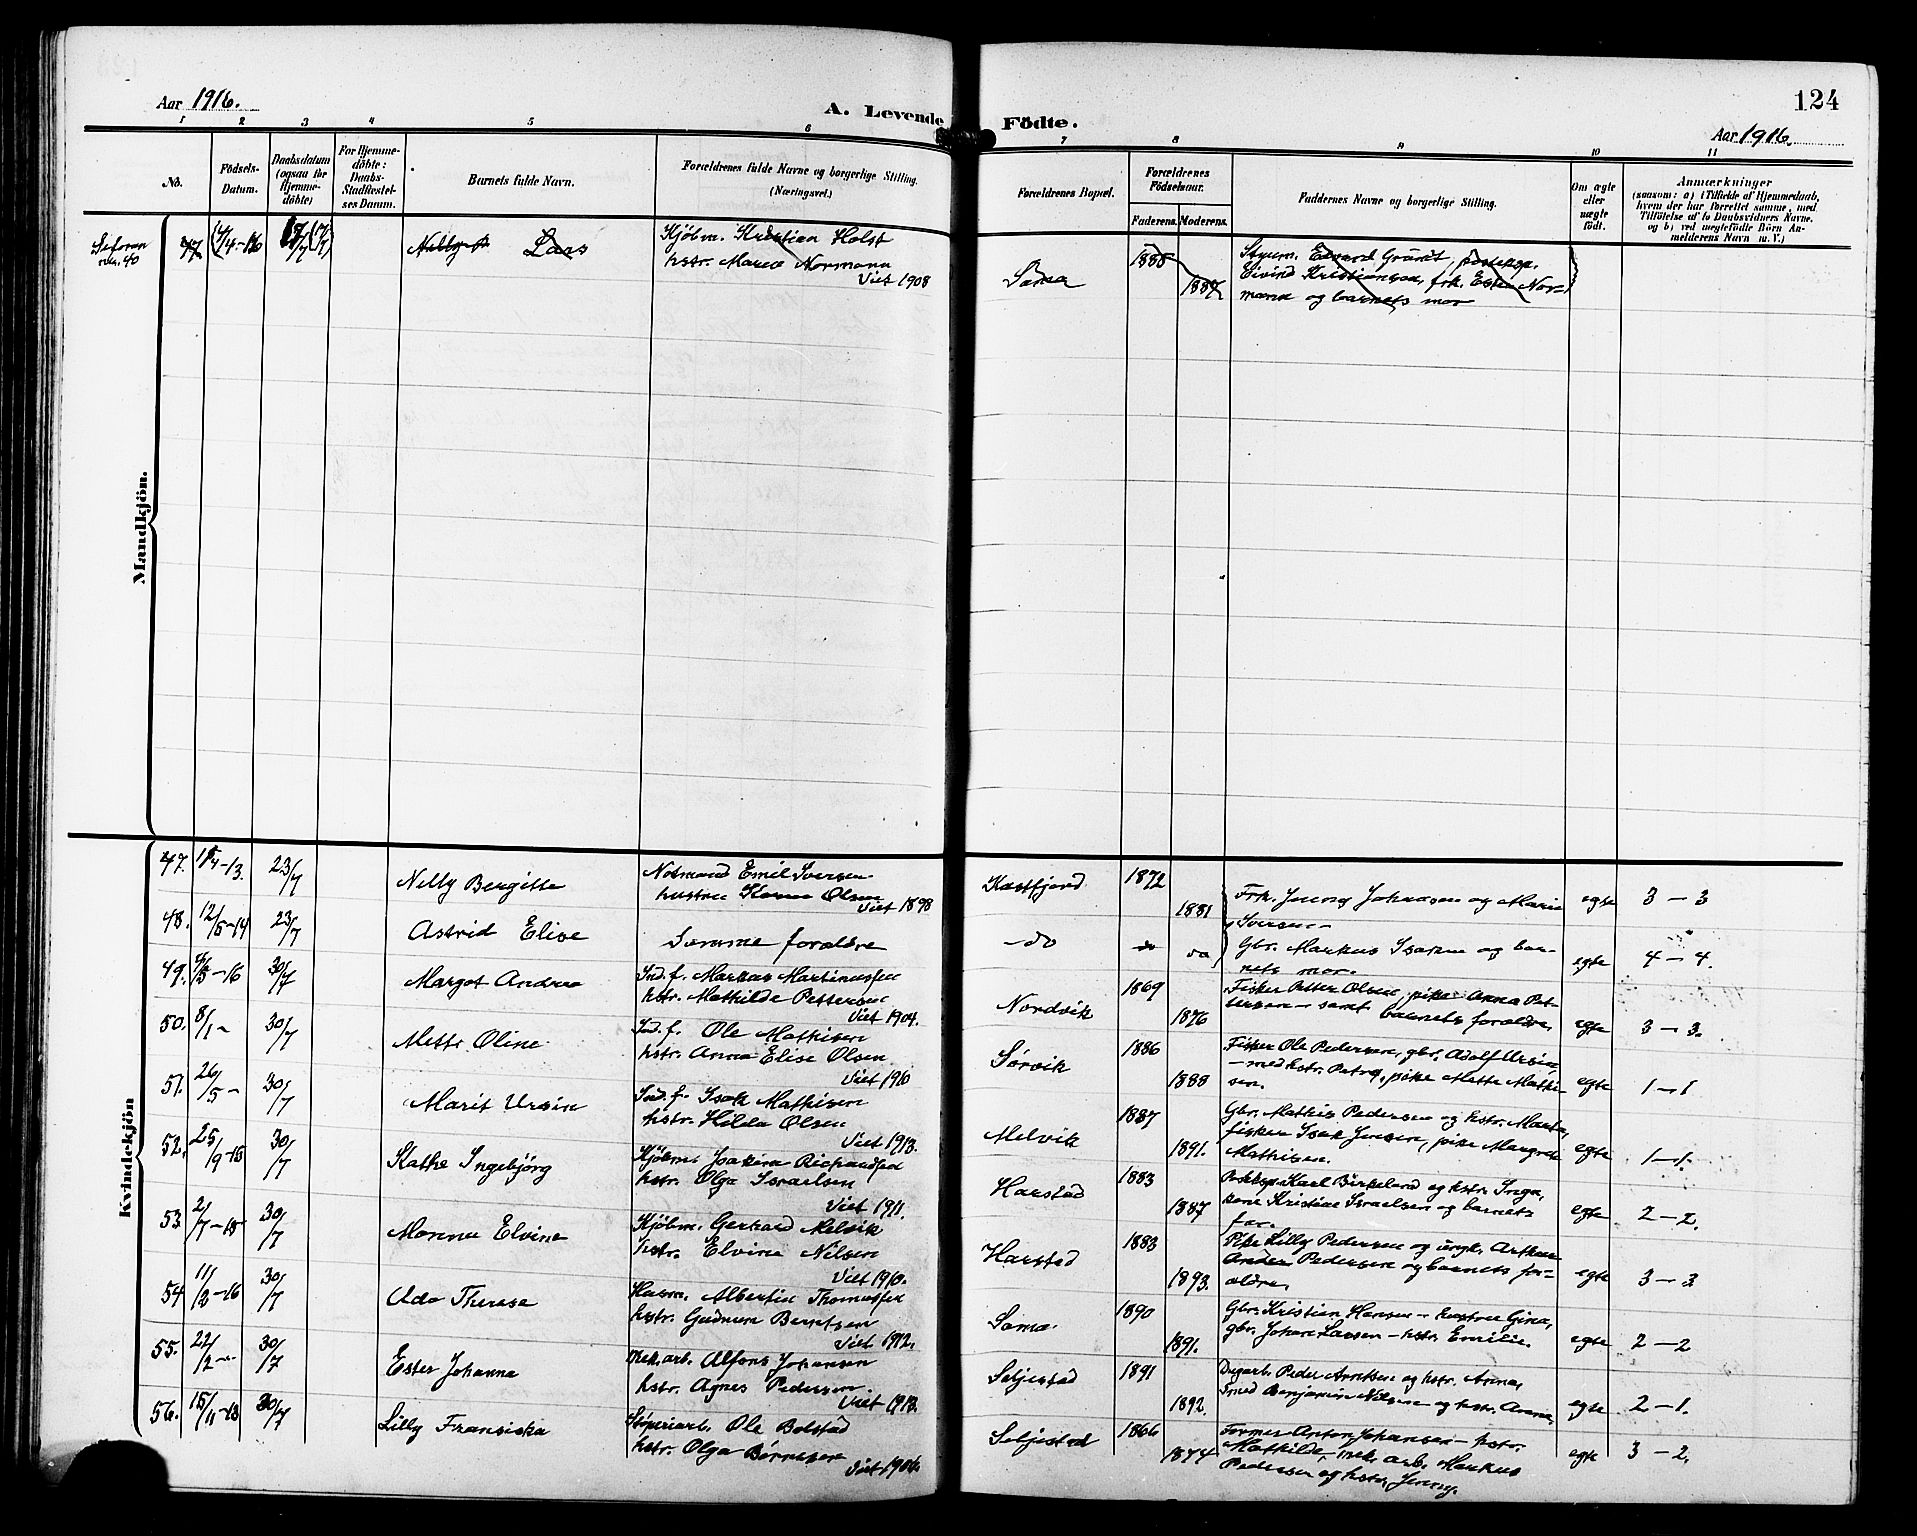 Aar 1916.
A. Levende
Födte.
124
Aar 1916.
1 2 3 4 5 6 7 8 9 10 11
No.
Födsels-
Datum.
Daabsdatum
(ogsaa for
Hjemme-
döbte)
For Hjemme-
döbte:
Daabs-
Stadfæstel-
ses Datum.
Barnets fulde Navn.
Forældrenes fulde Navne og borgerlige Stilling.
(Næringsvei.)
Forældrenes Bopæl.
Forældrenes
Födselsaar.
Faderens. Moderens.
Faddernes Navne og borgerlige Stilling.
Om ægte
eller
uægte
født.
Anmærkninger
(saasom: a) i Tilfælde af Hjemmedaab,
hvem der har forrettet samme, med
Tilföielse af to Daabsvidners Navne,
og b) ved uægtefödte Börn An-
melderens Navn m. V.)
Mandkjön.
Se foran
nr. 40
Laas
Kjøbm. Kristian Holst
hstr. Marie Normann
Viet 1908
Sama
1885
1887
Styrm. Edvard Grändt,
Eivind Kristiansen, frk. Ester Nor-
mann og barnets mor
Kvindekjön
47. 23/7 Nelly Bergitte
Notmand Emil Iversen
hustru Olsen
Viet 1898
Kastfjord 1872 1881
Frk. Jenny Johansen og Marie
Iversen
egte 3-3
48. 12/5-14 23/7 Astrid Elise
Samme forældre
-do do do
Gbr. Markus Isaksen og bar-
nets mor.
egte 4-4.
49. 30/7 Margot Andrea
Ind.f. Markus Martinussen
hstr. Mathilde Pettersen
Viet 1904.
Nordvik 1869 1876
Fisker Petter Olsen, pike Anna Pet-
tersen samt barnets forældre,
egte 3-3.
50. 8/1- 30/7 Mette Oline
Ind.f. Ole Mathisen
hstr. Anna Elise Olsen
Viet 1910
Sørvik 1886 1888
Fisker Ole Pedersen, gbr. Adolf Ursin
- med hstr. Petra, pike Mette Mathi-
sen.
egte 1-1
51. 26/5- 30/7 Marit Ursin
Ind.f. Isak Mathisen
hstr. Hilda Olsen
Viet 1913.
Melvik 1887 1891.
Gbr. Mathis Pedersen og hstr. Marta,
fisker Isak Jensen, pike Margrete
Mathisen.
egte 1-1.
52. 25/9-15 30/7 Kathe Ingebjörg
Kjøbm. Joakim Richardsen
hstr. Olga Israelsen
Viet 1911.
Harstad 1883 1887
Karl Birkeland og hstr. Inga,
Kristine Israelsen og barnets
far.
egte 2-2.
53. 2/7-15 30/7 Monna Elvine
Kjøbm. Gerhard Melvik
hstr. Elvine Nilsen
Viet 1910.
Harstad 1883 1893.
Pike Lilly Pedersen og ungk. Arthur
Ander Pedersen og barnets for-
ældre,
egte 3-3
54 11/2-16 30/7 Ada Therese
Husm. Albertin Thomassen
hstr. Gudrun Berntsen
Viet 1912.
Sama 1890 1891.
Gbr. Kristian Hansen - hustru Gina,
gbr. Johan Larsen - hstr. Emilie.
egte 2-2
55. 22/2- 30/7 Ester Johanna
Mek.arb. Alfons Johansen
hstr. Agnes Pedersen.
Viet 1913.
Seljestad 1891 1892.
Peder Arntsen og hstr. Anna,
smed Benjamin Nilsen og hstr. Anna
egte 2-1.
56. 15/11-13 30/7 Lilly Fransiska
Støperiarb. Ole Bolstad
hstr. Olga Børnesen
Viet 1906.
Seljestad 1866 1874
Former Anton Johansen - hstr.
Mathilde, mek. arb. Markus
Pedersen og hstr. Jenny.
egte 3-2.